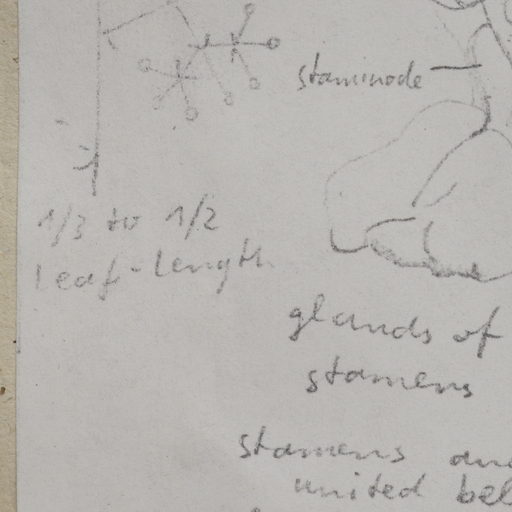 staminode
1/3 to 1/2
leaf-length
glands of
stamens
stamens and
united bel